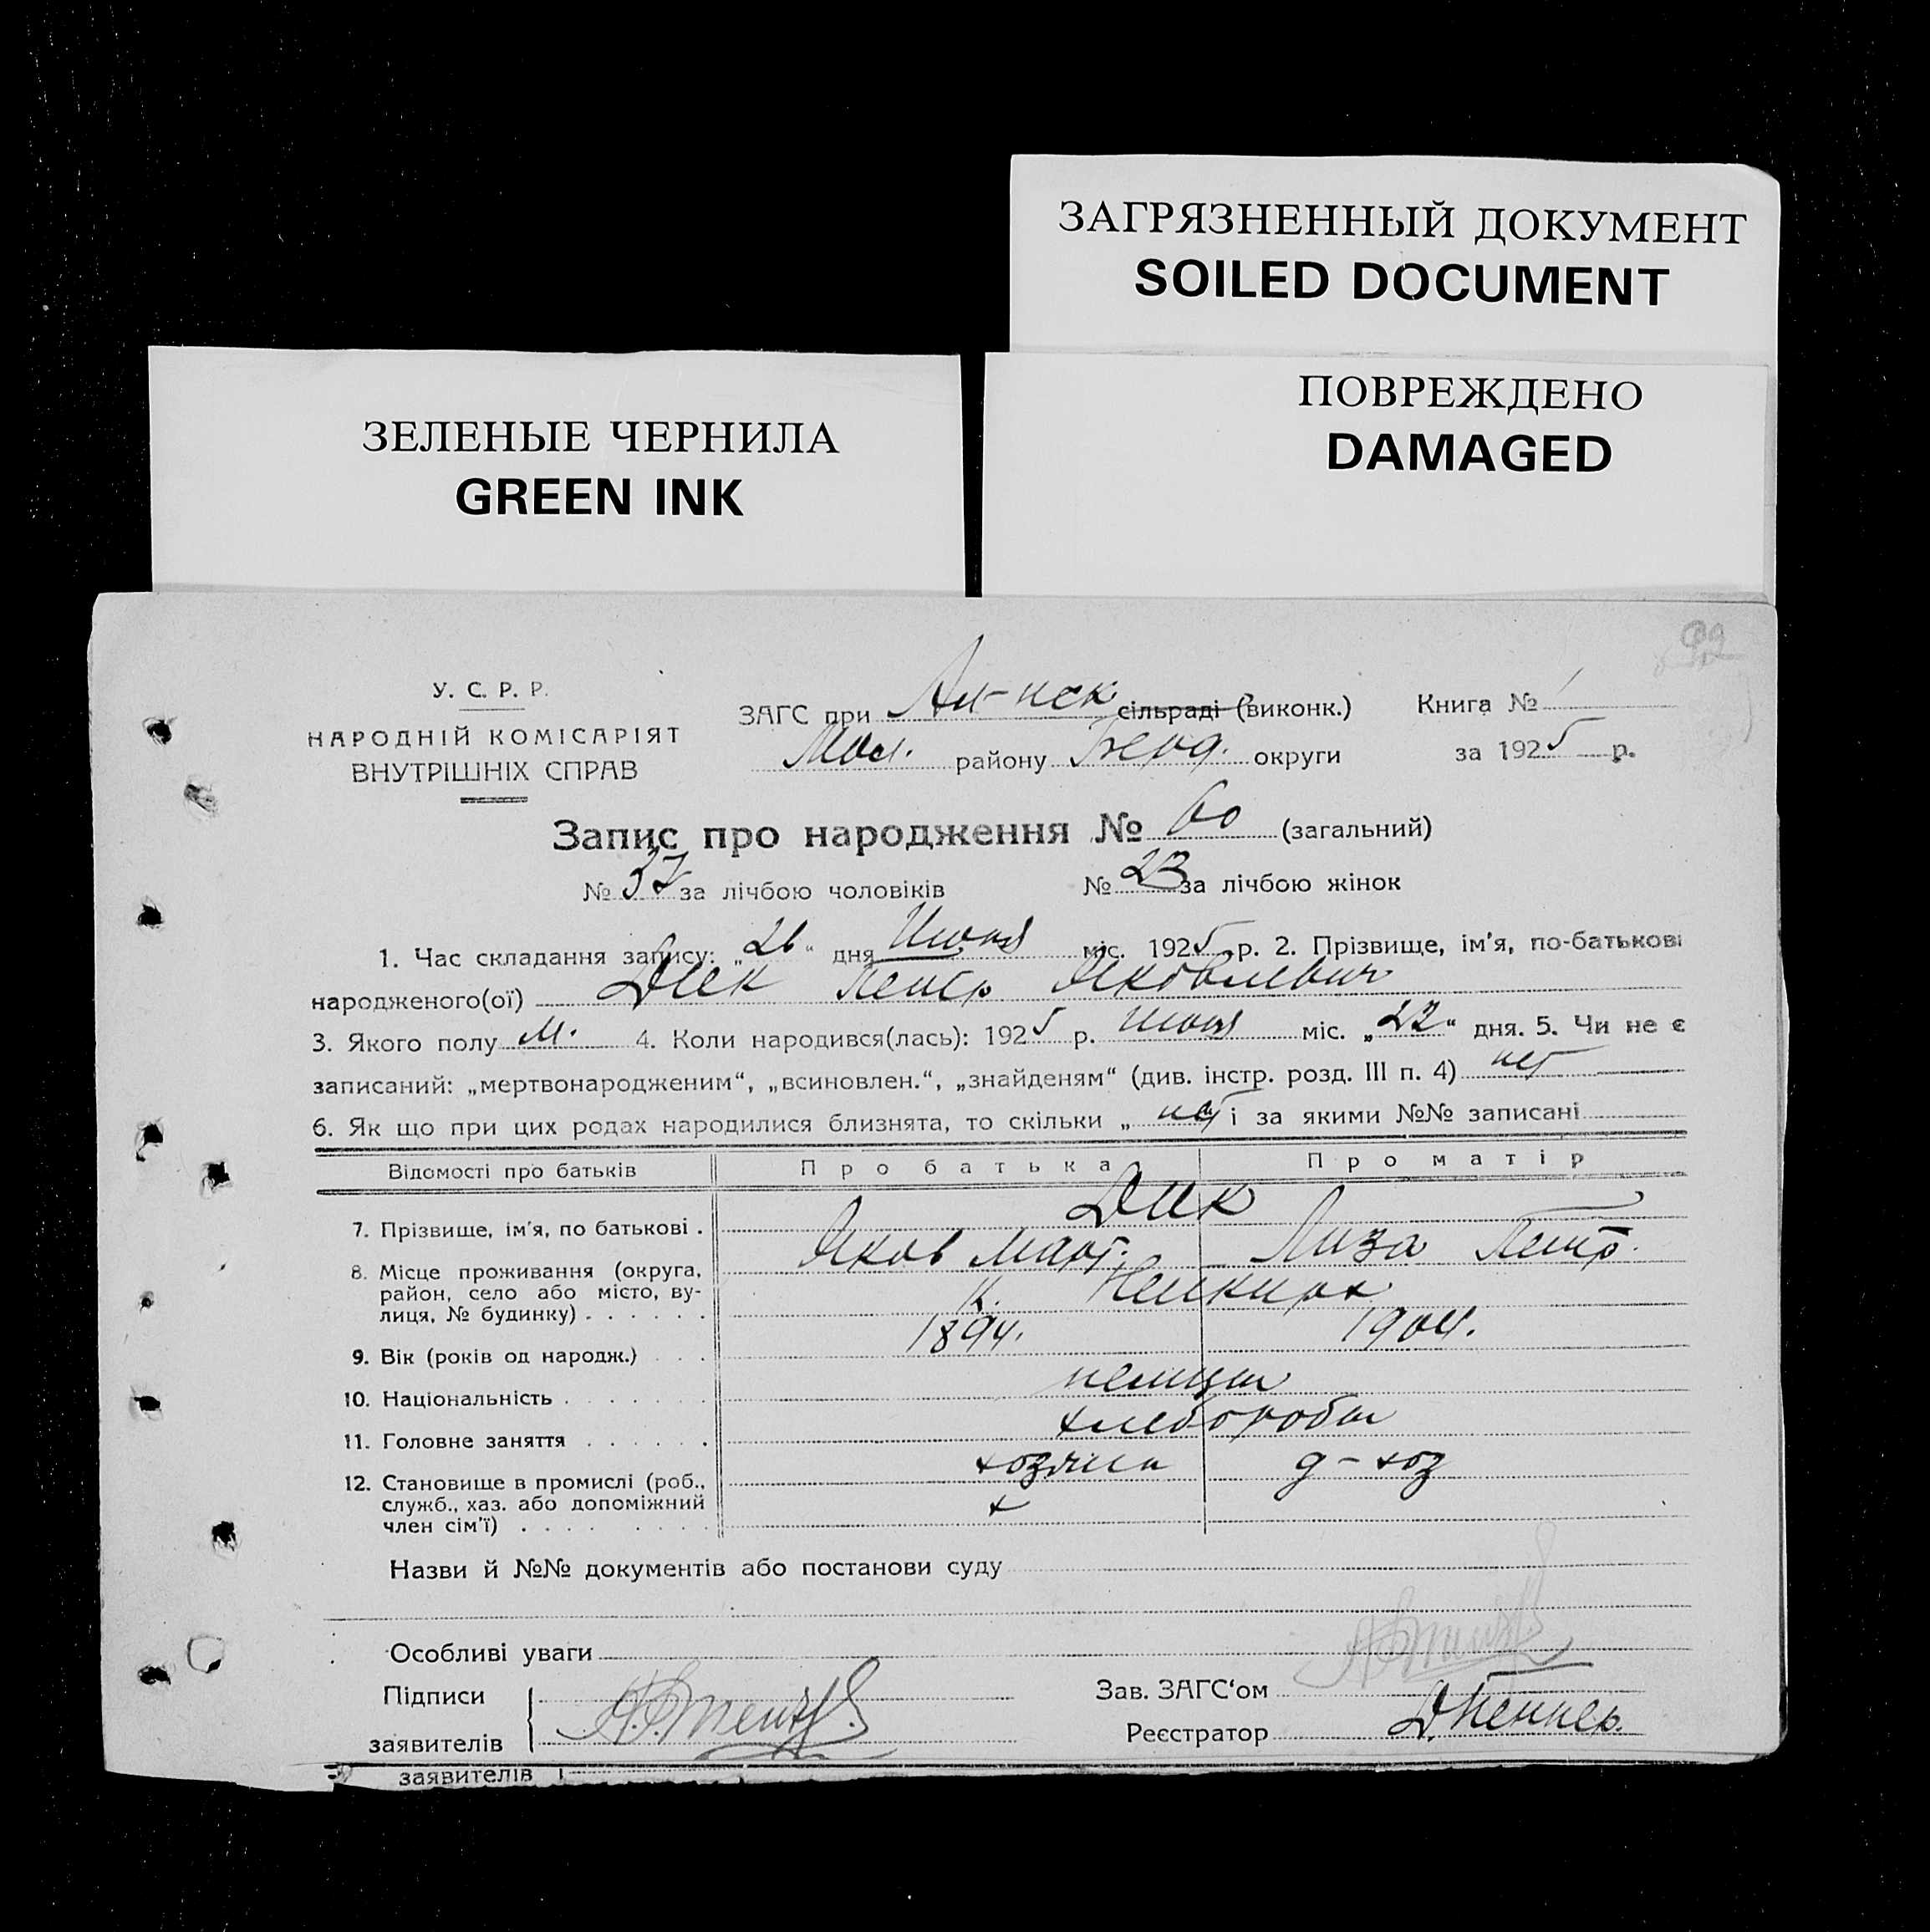 ЗАГРЯЗНЕННЫЙ ДОКУМЕНТ
SOILED DOCUMENT
ПОВРЕЖДЕНО
DAMAGED
ЗЕЛЕНЫЕ ЧЕРНИЛА
GREEN INK
У. С. Р. Р.
НАРОДНІЙ КОМІСАРІЯТ
ВНУТРІШНІХ СПРАВ
ЗАГС при сільраді (виконк.) Книга № 1
Мол. району Берд. округи за 1925 р.
Запис про народження № 60 (загальний)
№ 37 за лічбою чоловіків № 23 за лічбою жінок
1. Час складання запису: „26“ дня Июля міс. 1925 р. 2. Прізвище, ім'я, по-батькові
народженого(ої) Дик Петр Яковлевич
3. Якого полу м. 4. Коли народився(лась): 1925 р. июля міс. „22“ дня. 5. Чи не є
записаний: „мертвонародженим“, „всиновлен.“, „знайденям“ (див. інстр. розд. III п. 4) нет
6. Як що при цих родах народилися близнята, то скільки „ нет і за якими №№ записані
Відомості про батьків Про батька Про матір
7. Прізвище, ім'я, по батькові . Дик
Яков Март. Лиза Петр.
8. Місце проживання (округа, район, село або місто, вулиця, № будинку) . . . . . . к.
9. Вік (років од народж.) . . . 1894. 1904.
10. Національність . . . . . . . немцы
11. Головне заняття . . . . . . хлеборобы
12. Становище в промислі (роб., служб., хаз. або допоміжний член сім'ї) . . . . хозяин д-хоз
х
Назви й №№ документів або постанови суду
Особливі уваги
Підписи
заявителів
Зав. ЗАГС'ом
Реєстратор
заявителів